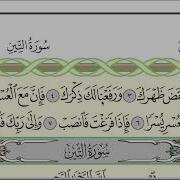 سُورَةُ التِّينِ سُورَةُ التِّينِ
ظَهْرَكَ ٣ وَرَفَعْنَا لَكَ ذِكْرَكَ ٤ فَإِنَّ مَعَ
يُسْرًا ٦ فَإِذَا فَرَغْتَ فَانصَبْ ٧ وَإِلَىٰ رَبِّكَ
سُورَةُ التِّينِ